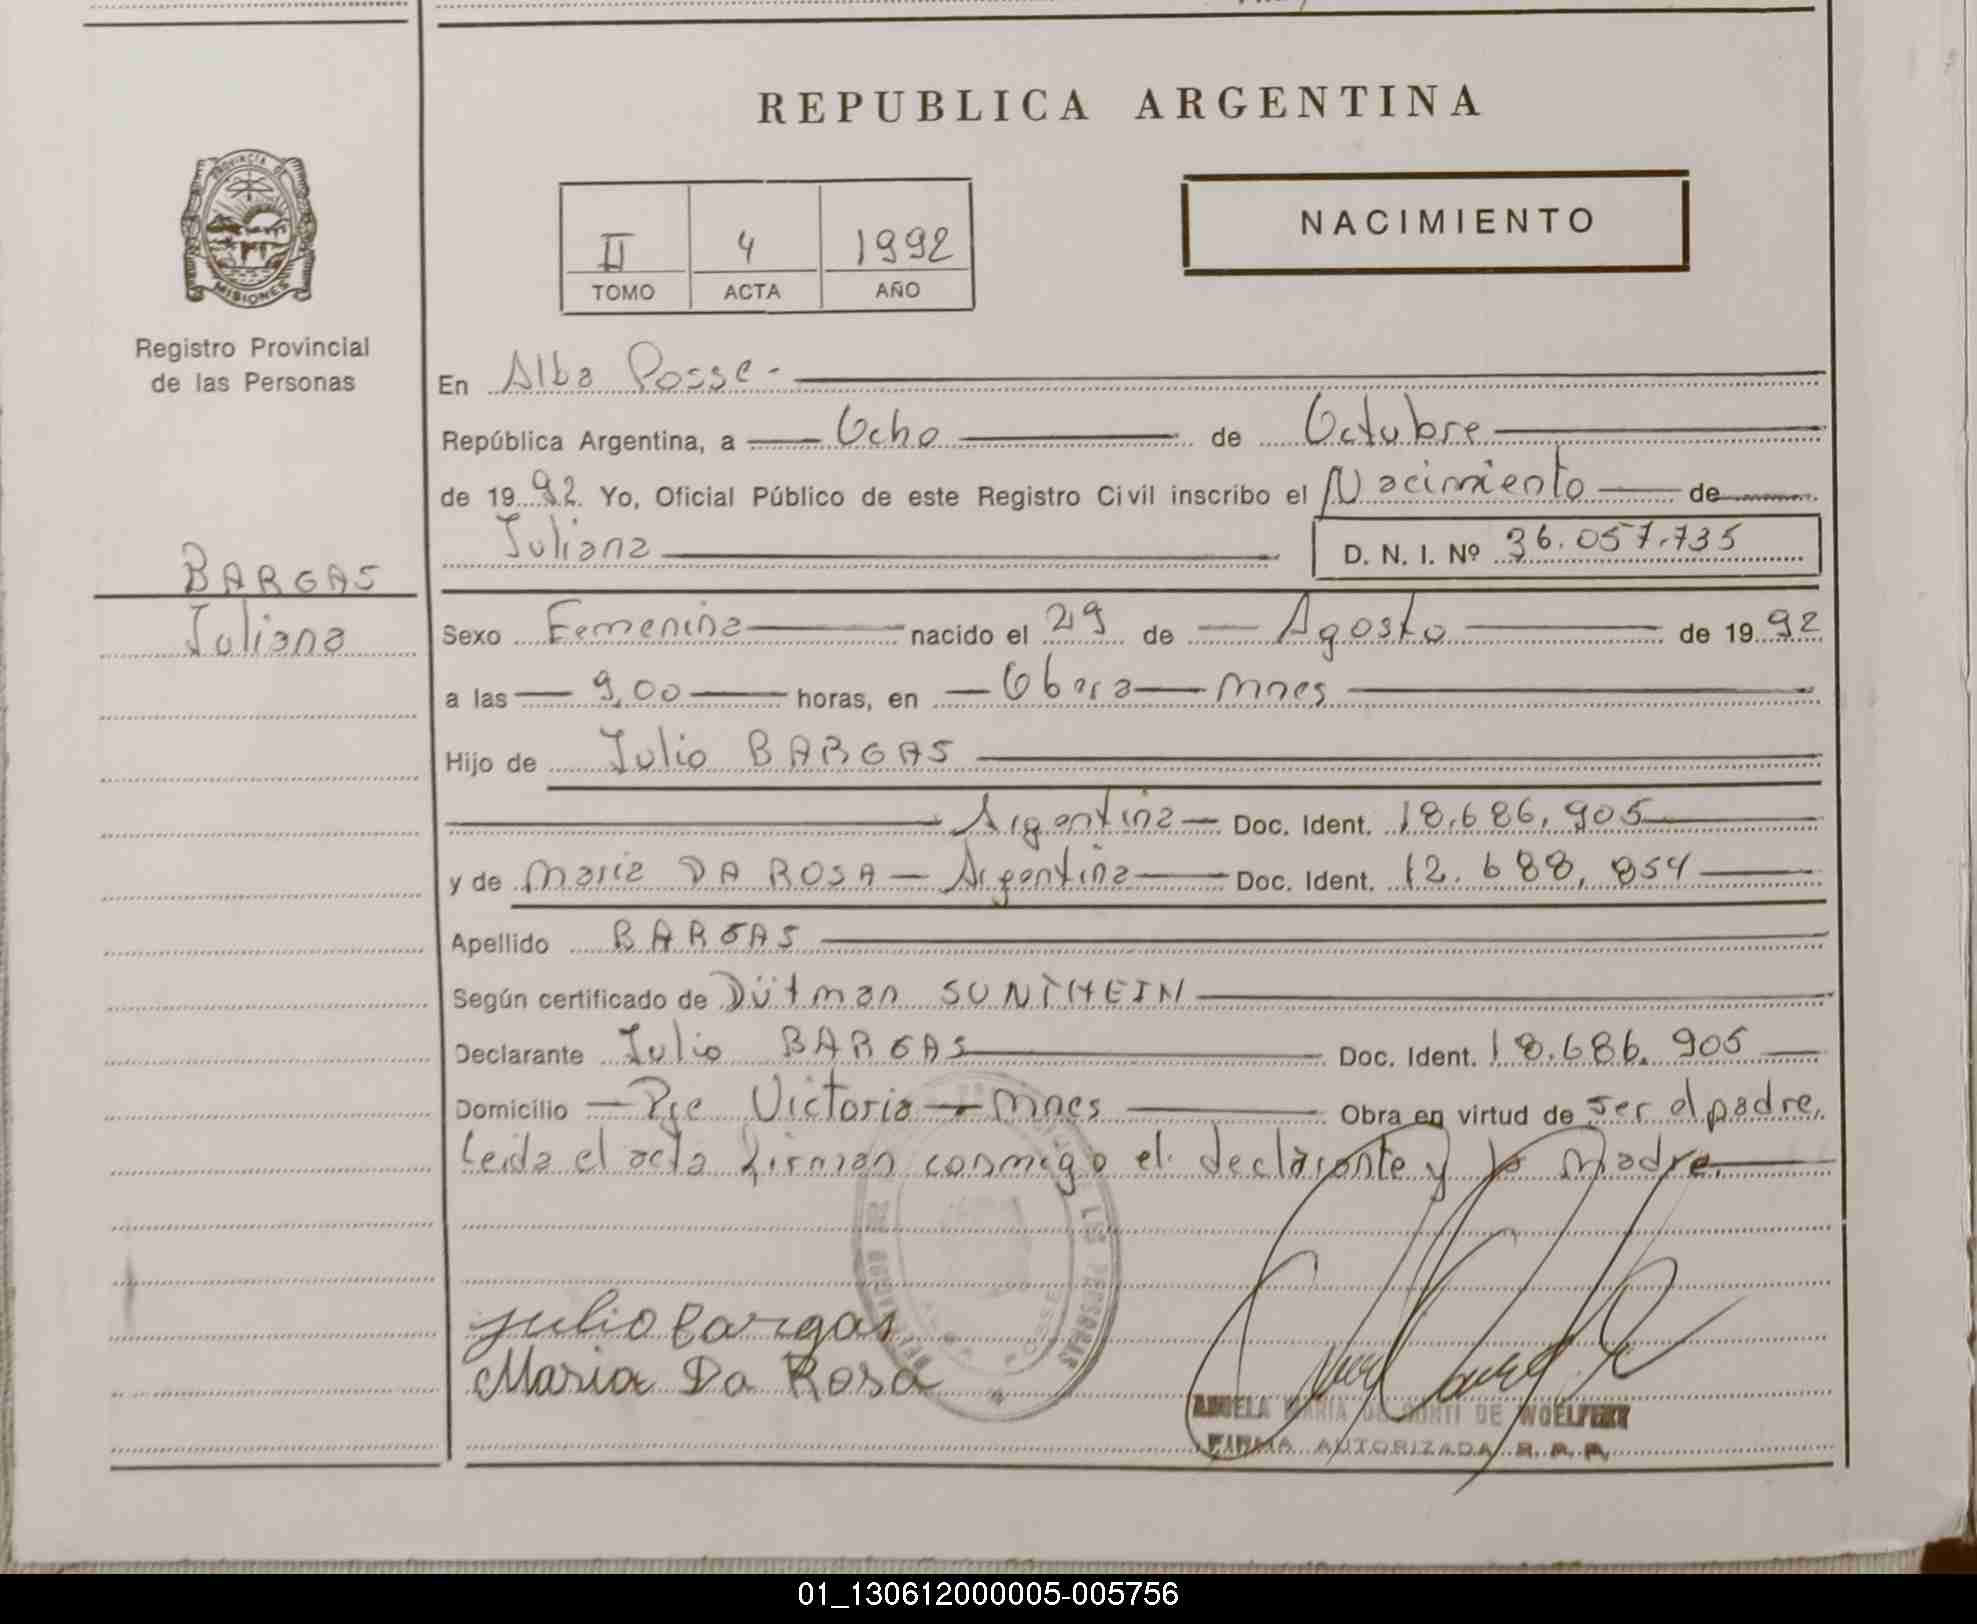 REPUBLICA ARGENTINA
PROVINCIA DE
MISIONES
Registro Provincial
de las Personas
II 4 1992
TOMO ACTA AÑO
NACIMIENTO
BARGAS
Juliana
En Alba Posse-
República Argentina, a Ocho de Octubre
de 1992. Yo, Oficial Público de este Registro Civil inscribo el Nacimiento de
Juliana D. N. I. Nº 36.057.735
Sexo Femenina nacido el 29 de Agosto de 1992
a las 9,00 horas, en Obera Mnes
Hijo de Julio BARGAS
Argentina Doc. Ident. 18.686.905
y de Maria DA ROSA Argentina Doc. Ident. 12.688.854
Apellido BARGAS
Según certificado de Dütman SUNTHEIN
Declarante Julio BARGAS Doc. Ident. 18.686.905
Domicilio Pje Victoria Mnes Obra en virtud de ser el padre,
Leida el acta firman conmigo el declarante y la madre.
Julio Bargas
Maria Da Rosa
ALBA POSSE
MARIA DE WOELFERT
FIRMA AUTORIZADA R. P. P.
01_130612000005-005756